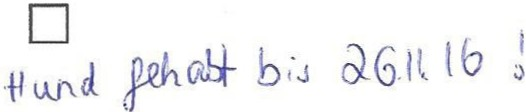 Hund gehabt bis 26.11.16 !